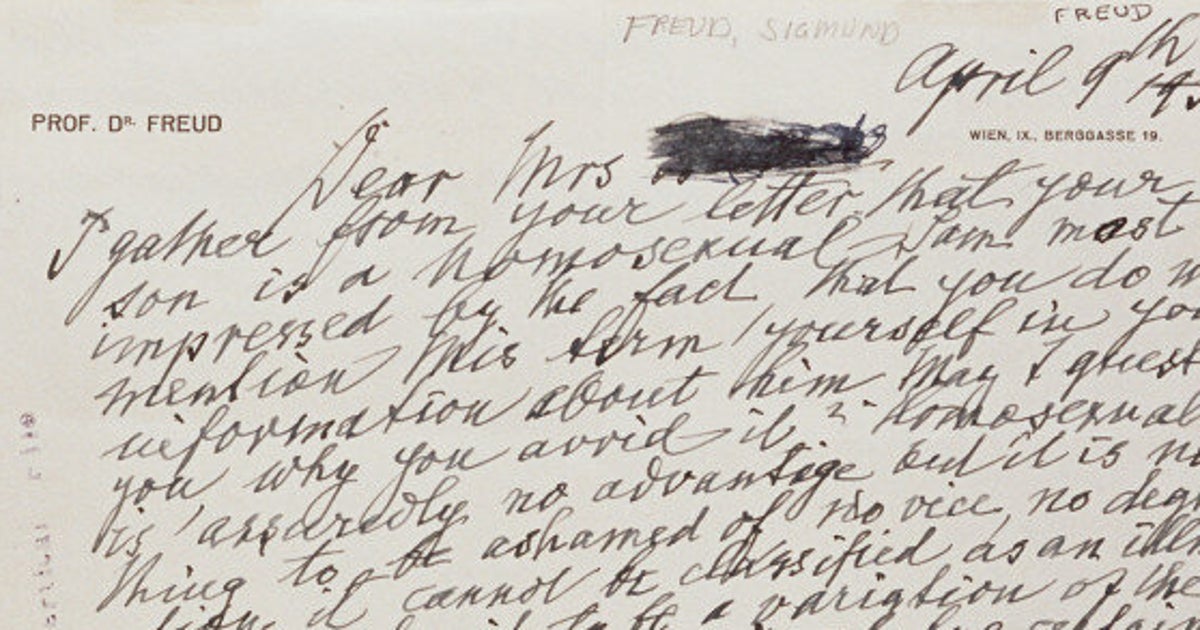 FREUD, SIGMUND
FREUD
April 9th 19
PROF. DR. FREUD
WIEN, IX., BERGGASSE 19.
Dear Mrs
I gather from your letter that your
son is a homosexual. I am most
impressed by the fact, that you do
mention this term yourself in yo
information about him. May I quest
you why you avoid it? Homosexual
is assuredly no advantage but it is no
thing to be ashamed of, no vice, no deg
it cannot be classified as an illn
a variation of the